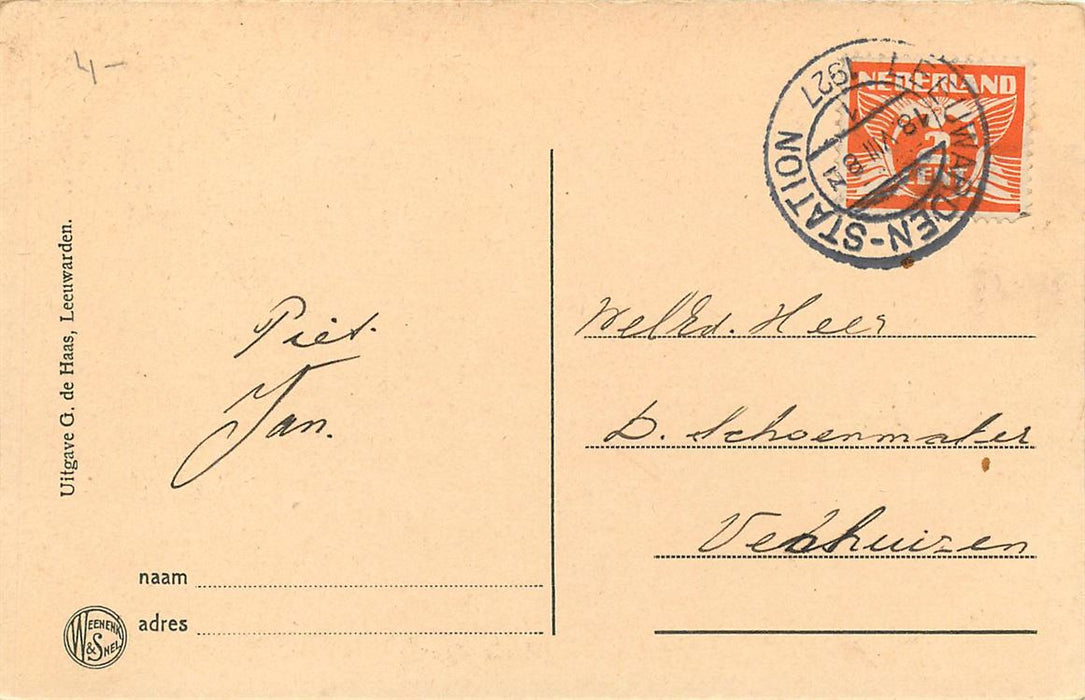 4-
NEDERLAND
2
CENT
LEEUWARDEN-STATION
18 VIII 8 21
1927
Uitgave G. de Haas, Leeuwarden.
Piet.
Jan.
WelEd. Heer
D. Schoenmaker
Venhuizen
naam
adres
WEENENK & SNEL